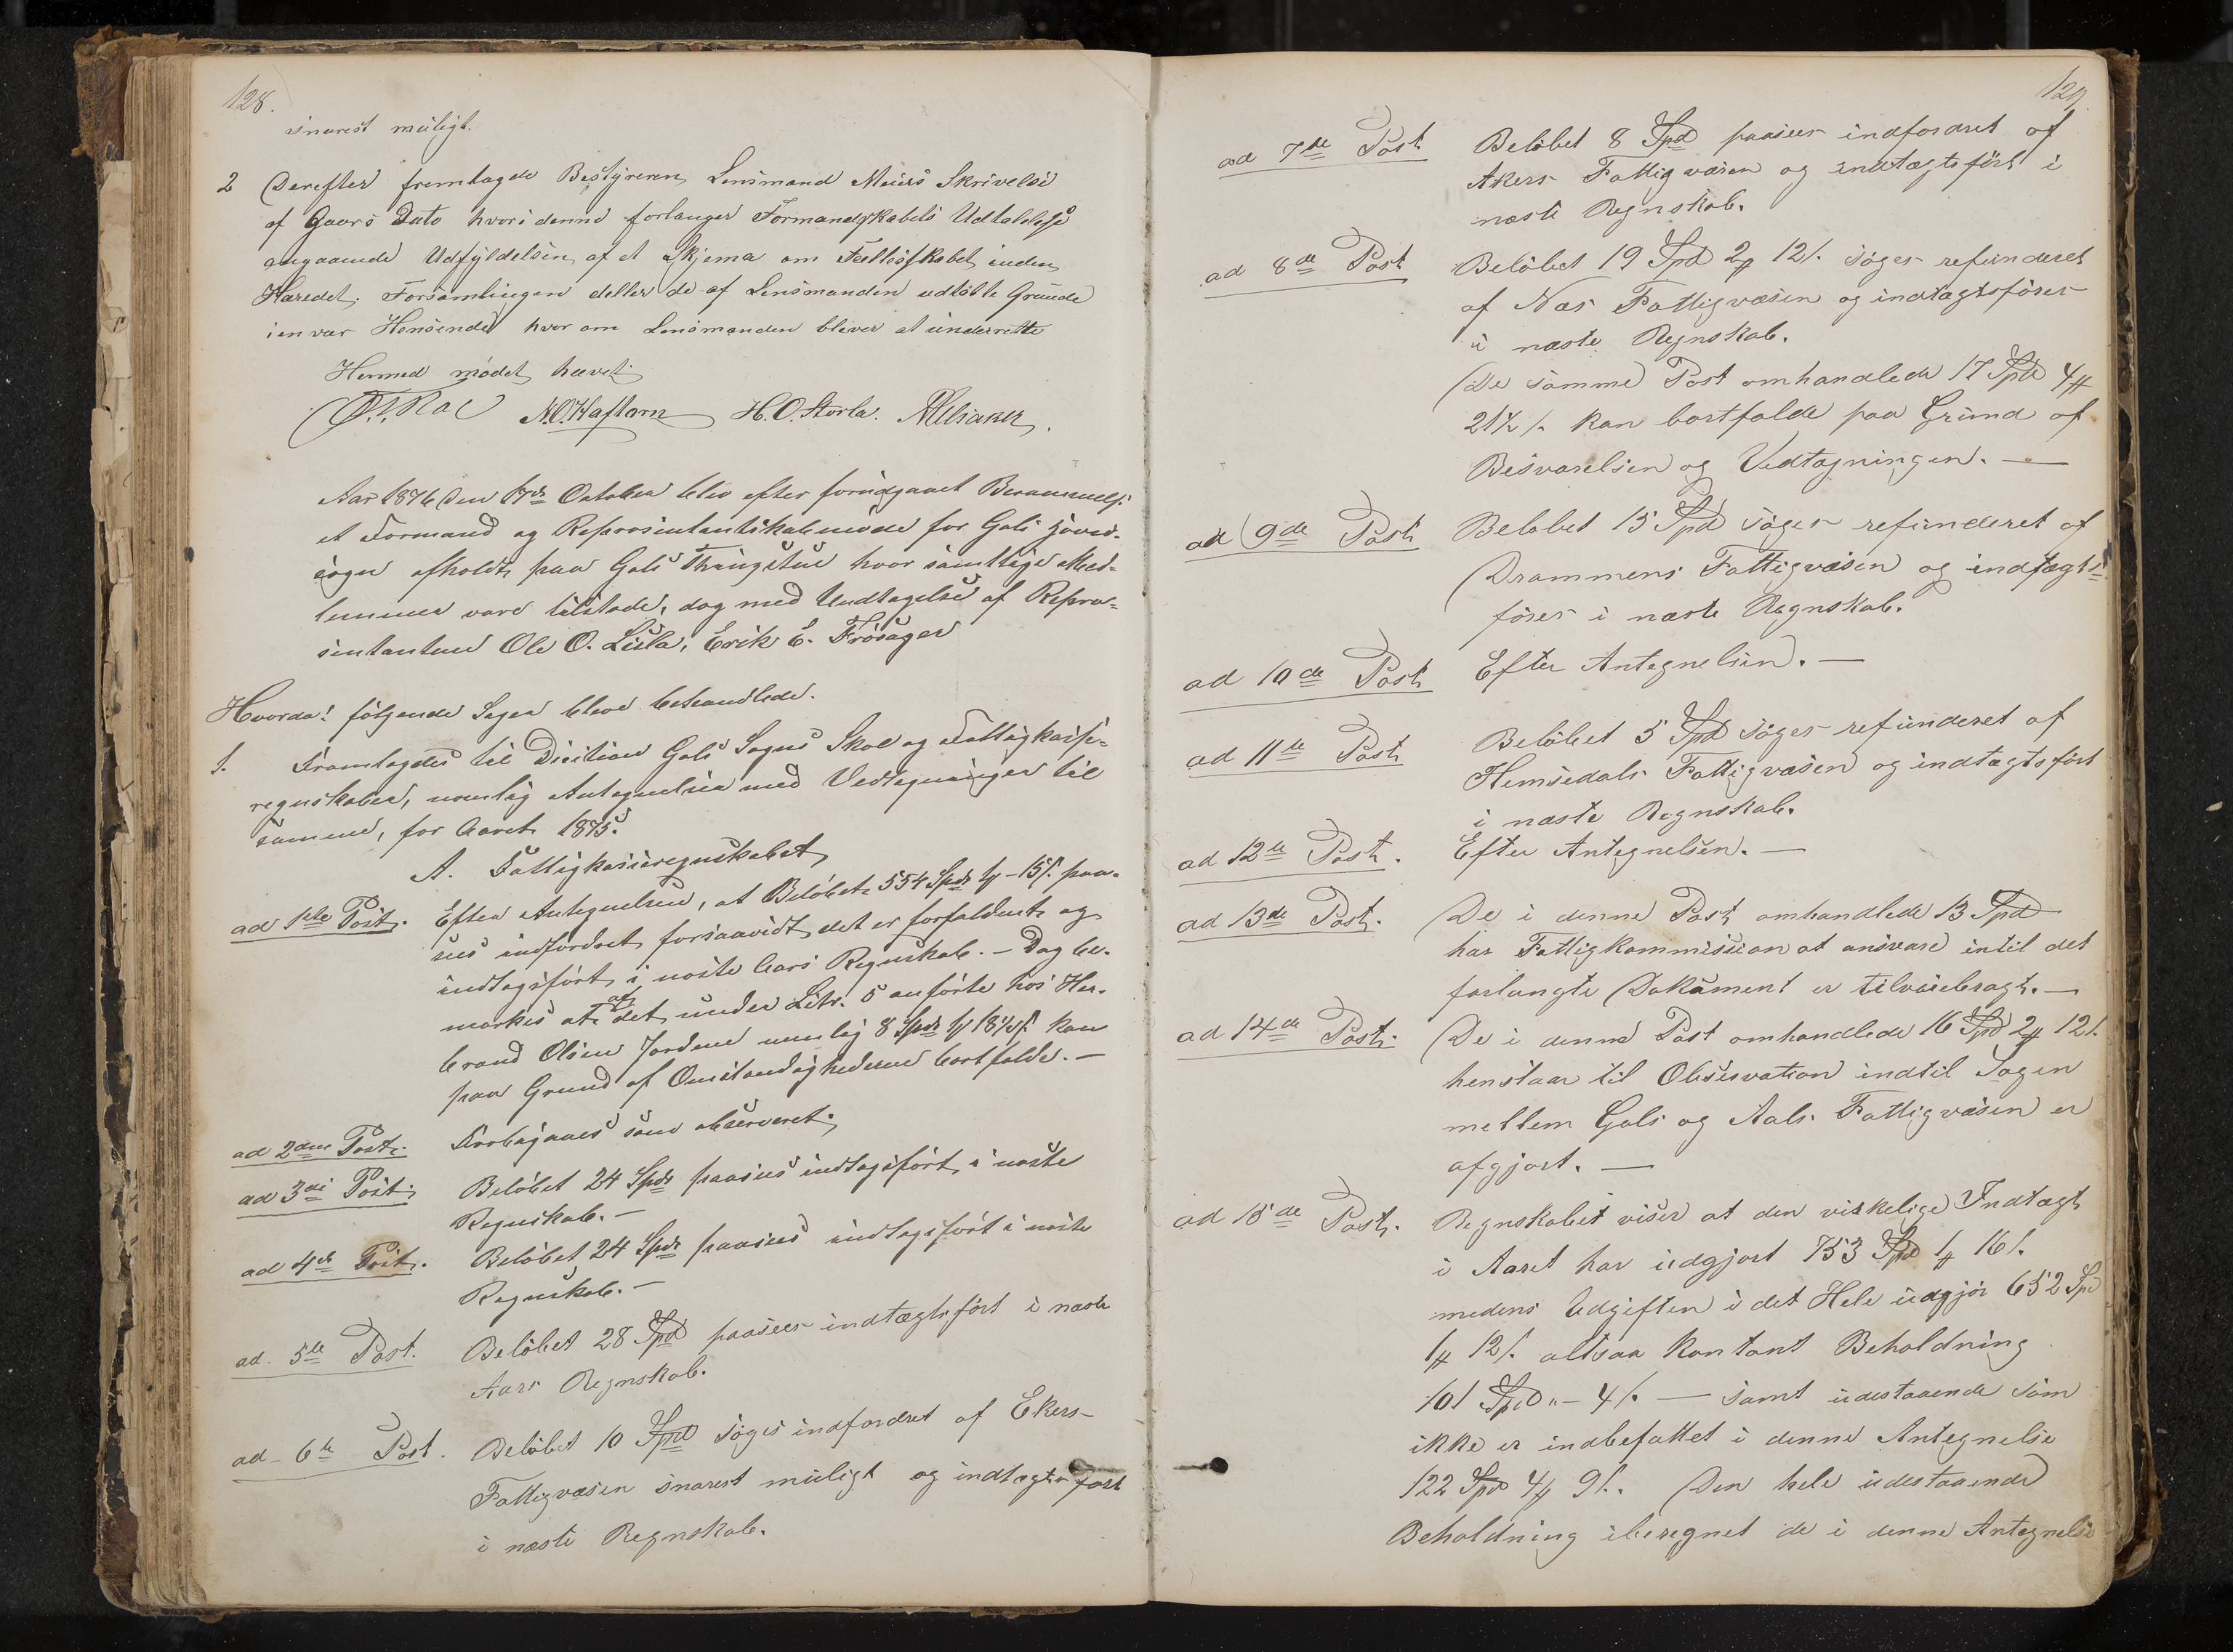 128.
snarest muligt.
2 Derefter fremlagde Bestyreren Lensmand Meiers Skrivelse
af Gaars Dato hvori denne forlanger Formandskabets Udtalelse
angaaende Udfyldelsen af et Skjema om Fællesskabet inden
Heredet. Forsamlingen deller de af Lensmanden udtalte Grunde
i en var Henseende hvor om Lensmanden bliver at underrette
Hermed mødet hævet.
N.O.Haftorn H.O.Storla.
Aar 1876 Den 17de October blev efter forudgaaet Berammelse
et Formand og Repræsentantskabsmøde for Gols hoved-
sogn afholdt paa Gols Thingstue hvor samtlige Med-
lemmer vare tilstede, dog med Undtagelse af Repræ-
sentanterne Ole O. Liila, Erik E. Frøsager
Hvorda! følgende Sager bleve behandlede.
1. Fremlagdes til Dicition Gols Sogns Skole og Fattigkasse-
regnskaber, nemlig Antegnelser med Vedtegninger til
samme, for Aaret 1875.
A. Fattigkasseregnskabet
ad 1ste Post. Efter Antegnelsen, at Beløbet 554 Spd 1 ₰ - 15 /. paa-
sees indfordret forsaavidt det er forfaldent og
indtægsført i næste Aars Regnskab. - Dog be-
mærkes at af det under Litr. 5 anførte hos Hal-
brand Olsen Jordene nemlig 8 Spd 1 ₰ 18 1/2 /. kan
paa Grund af Omstændighederne bortfalde. —
ad 2den Post. Forbigaaes som observeret.
ad 3die Post. Beløbet 24 Spd paasees indtægsført i næste
Regnskab. —
ad 4de Post. Beløbet 24 Spd paasees indtægsført i næste
Regnskab. —
ad. 5te Post. Beløbet 28 Spd paasees indtægtsført i næste
Aars Regnskab.
ad - 6te Post. Beløbet 10 Spd søges indfordret af Ekers
Fattigvæsen snarest muligt og indtægtsført
i næste Regnskab.
129.
ad 7de Post Beløbet 8 Spd paasees indfordret af
Akers Fattigvæsen og indtægtsført i
næste Regnskab.
ad 8de Post Beløbet 19 Spd 2 ₰ 12 /. søges refunderet
af Næs Fattigvæsen og indtægtsføres
i næste Regnskab.
De samme Post omhandlede 17 Spd 4 ₰
21 1/2 /. kan bortfalde paa Grund af
Besvarelsen og Vedtagningen. —
ad 9de Post Beløbet 15 Spd søges refunderet af
Drammens Fattigvæsen og indtægts-
føres i næste Regnskab.
ad 10de Post Efter Antegnelsen. —
ad 11te Post Beløbet 5 Spd søges refunderet af
Hemsedals Fattigvæsen og indtægtsført
i næste Regnskab.
ad 12te Post. Efter Antegnelsen. —
ad 13de Post. De i denne Post omhandlede 13 Spd
har Fattigkommission at ansvare intil det
forlangte Dokument er tilveiebragt. —
ad 14de Post. De i denne Post omhandlede 16 Spd 2 ₰ 12 /.
henstaar til Observation indtil Sagen
mellem Gols og Aals Fattigvæsen er
afgjort. —
ad 15de Post. Regnskabet viser at den virkelige Indtægt
i Aaret har udgjort 753 Spd 1 ₰ 16 /.
medens Udgiften i det Hele udgjør 652 Spd
1 ₰ 12 /. altsaa kontant Beholdning
101 Spd „ - 4 /. — samt udestaaende som
ikke er indbefattet i denne Antegnelse
122 Spd 4 ₰ 9 /. Den hele udestaaende
Beholdning iberegnet de i denne Antegnelse